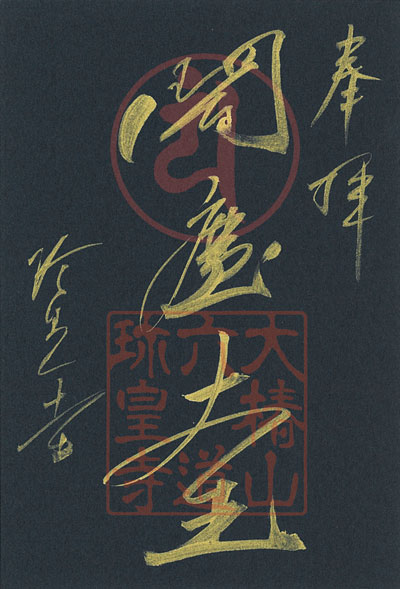 奉拝
閻魔大王
珍皇寺
大椿山
六道
珎皇寺